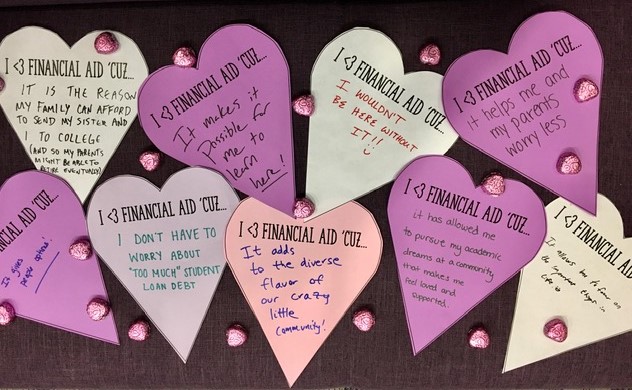 I <3 FINANCIAL AID 'CUZ...
IT IS THE REASON
MY FAMILY CAN AFFORD
TO SEND MY SISTER AND
I TO COLLEGE
(AND SO MY PARENTS
MIGHT BE ABLE TO
RETIRE EVENTUALLY)
I <3 FINANCIAL AID 'CUZ...
It makes it
possible for
me to
learn
here!
I <3 FINANCIAL AID 'CUZ...
I WOULDN'T
BE HERE WITHOUT
IT!!
I <3 FINANCIAL AID 'CUZ...
it helps me and
my parents
worry less
FINANCIAL AID 'CUZ...
It gives
people options!
I <3 FINANCIAL AID 'CUZ...
I DON'T HAVE TO
WORRY ABOUT
"TOO MUCH" STUDENT
LOAN DEBT
I <3 FINANCIAL AID 'CUZ...
It adds
to the diverse
flavor of
our crazy
little
community!
I <3 FINANCIAL AID 'CUZ...
it has allowed me
to pursue my academic
dreams at a community
that makes me
feel loved and
supported.
I <3 FINANCIAL
It allows me to focus on
the important things in
life